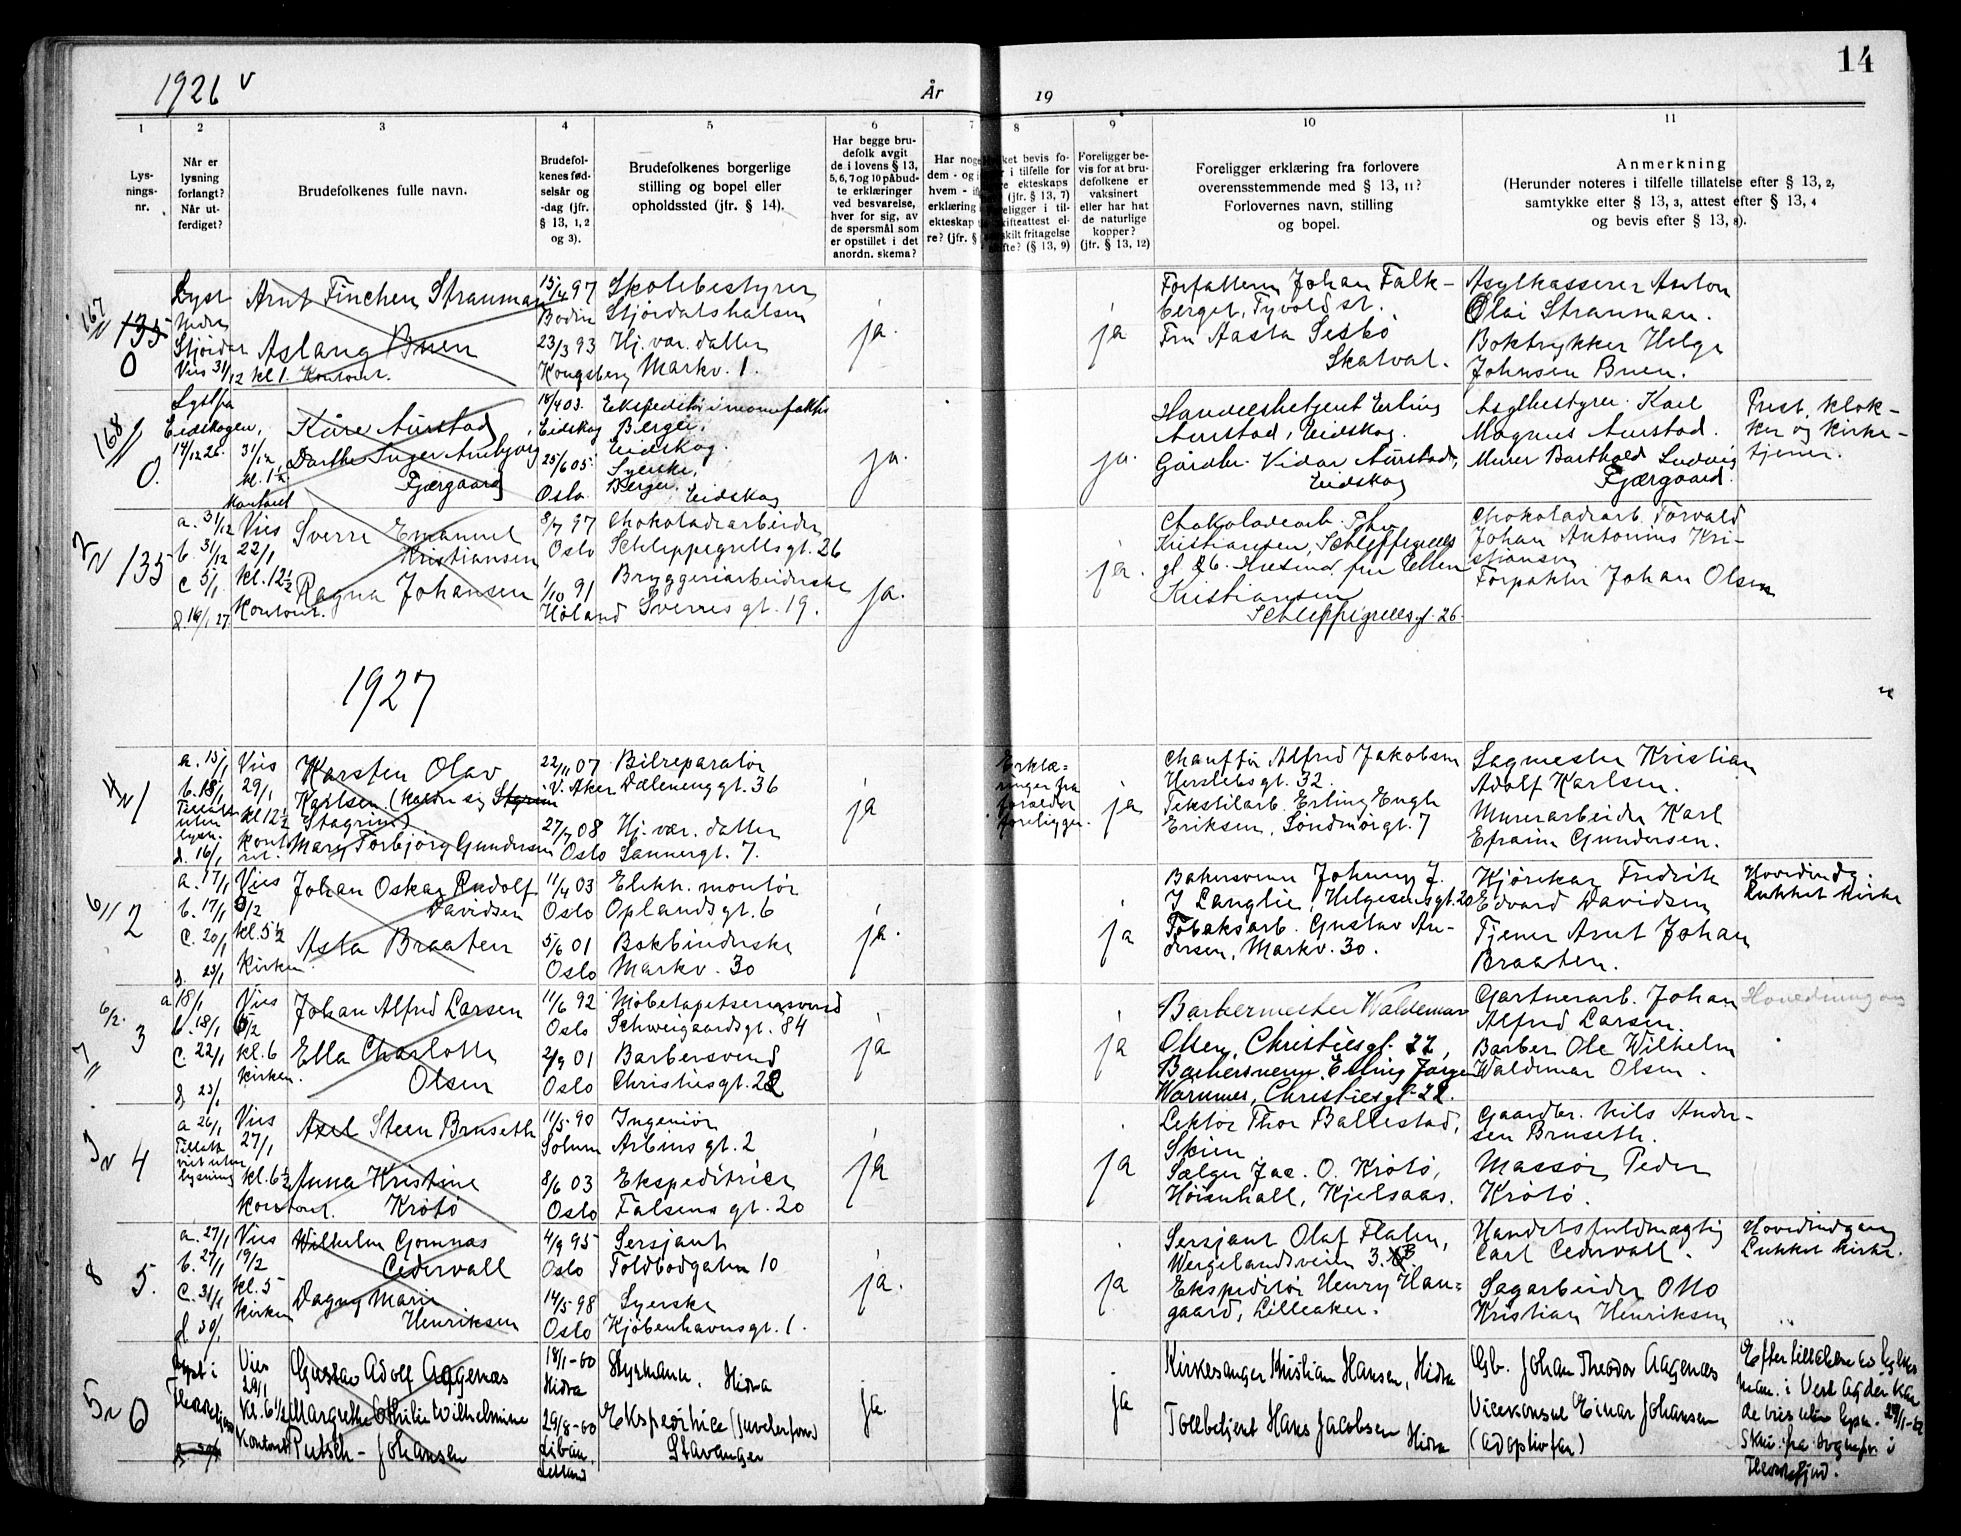 14
1926 v
År
19
1 2 3 4 5 6 7 8 9 10 11
Lys-
nings-
nr.
Når er
lysning
forlangt?
Når ut-
ferdiget?
Brudefolkenes fulle navn.
Brudefol-
kenes fød-
selsår og
-dag (jfr.
§ 13, 1, 2
og 3).
Brudefolkenes borgerlige
stilling og bopel eller
opholdssted (jfr. § 14).
Har begge bru-
defolk avgit
de i lovens § 13,
5, 6, 7 og 10 påbud-
te erklæringer
ved besvarelse,
hver for sig, av
de spørsmål som
er opstillet i det
anordn. skema?
Foreligger be-
vis for at bru-
defolkene er
vaksinert
eller har hat
de naturlige
kopper?
(jfr. § 13, 12)
Foreligger erklæring fra forlovere
overensstemmende med § 13, 11?
Forlovernes navn, stilling
og bopel.
Anmerkning
(Herunder noteres i tilfelle tillatelse efter § 13, 2,
samtykke efter § 13, 3, attest efter § 13, 4
og bevis efter § 13, 8).
167
135
0
Lyst
Nedre
Stjørdal
Vies 31/12 kl 1. Kontoret.
Arnt Finchen Straumann
Aslaug Buen
15/4 97
Bodin
23/3 93
Kongsberg
Skolebestyrer
Stjørdalshalsen
Hj. vær. datter
Markv. 1.
ja.
ja
Forfatteren Johan Falk-
berget, Tyvold st.
Fru Aasta Sesbø
Skatval.
Asylkasserer Anton
Olai Strauman.
Boktrykker Helge
Johnsen Buen.
168
0.
Lyst fra
Eidskogen,
14/12 26.
31/12
kl. 1½
Kontoret
Kåre Aurstad
Dorthe Inger Anebjørg
Fjærgaard
18/4 03.
Eidskog
25/6 05.
Oslo.
Ekspeditør i manufaktur
Berger,
Eidskog.
Syerske,
Berger, Eidskog
ja.
ja.
Handelsbetjent Erling
Aurstad, Eidskog.
Gårdbr. Vidar Aurstad,
Eidskog
Asylbestyrer Karl
Magnus Aurstad.
Murer Barthold Ludvig
Fjærgaard.
Prest, klok-
ker og kirke-
tjener.
135
a. 31/12
b. 31/12
c 5/1
d. 16/1 27
Vies
22/1
kl. 12½
Kontoret.
Sverre Emanuel
Kristiansen
Ragna Johansen
8/7 97
Oslo
1/10 91
Høland
Chokoladearbeider
Schleppegrellsgt. 26
Bryggeriarbeiderske
Sverresgt. 19.
ja.
ja.
Chokoladearb. Thv.
Kristiansen, Schleppegrells
gt. 26. Kusine fru Ellen
Kristiansen
Schleppegrellsgt. 26.
Chokoladearb. Torvald
Johan Antonius Kri-
stiansen
Forpakter Johan Olsen
1927
1
a. 15/1
b. 18/1
d. 16/1
Vies
29/1
kl 12½
Karsten Olav
Karlsen (kalder sig
Stagrim)
Mary Torbjørg Gundersen
22/11 07
V. Aker
27/7 08
Oslo
Bilreparatør
Dælenenggt. 36
Hj. vær. datter
Sannergt. 7.
ja
Erklæ-
ringer fra
forældre
foreligger.
ja
Chauffør Alfred Jakobsen
Herslebsgt. 32.
Tekstilarb. Erling Engh
Eriksen, Søndmørgt. 7
Sagmester Kristian
Adolf Karlsen.
Murerarbeider Karl
Efraim Gundersen.
2
a. 17/1
b. 17/1
c. 20/1
d. 23/1
Vies
5/2
kl. 5½
Kirken.
Johan Oskar Rudolf
Davidsen
Asta Braaten
11/4 03
Oslo
5/6 01
Oslo
Elektr. montør
Oplandsgt. 6
Bokbinderske
Markv. 30
ja.
ja
Bakersvenn Johnny J.
J Langlie, Helgesensgt. 20
Tobaksarb. Gustav An-
dersen, Markv. 30.
Kjørekar Fredrik
Edvard Davidsen
Tjener Arnt Johan
Braaten.
Hovedindg.
Lukket kirke
3
a 18/1
b. 18/1
c. 22/1
d 23/1
Vies
5/2
kl. 6
kirken.
Johan Alfred Larsen
Ella Charlotte
Olsen
11/6 92
Oslo
2/9 01
Oslo
Møbeltapetserersvend
Schweigaardsgt. 84
Barbersvend
Christiesgt. 22
ja
ja
Barbermester Waldemar
Olsen, Christiesgt. 22,
Barbersvenn Erling Jørgen
Warumes, Christiesgt. 22.
Gartnerarb. Johan
Alfred Larsen.
Barber Ole Wilhelm
Waldemar Olsen.
Hovedinngang
4
a 26/1
Vies
27/1
kl. 6½
Kontoret.
Axel Steen Bruseth
Anna Kristine
Krøtø
11/5 90
Solum
8/6 03
Oslo
Ingeniør
Arbins gt. 2
Ekspeditrice
Falsens gt. 20
ja
ja
Lektor Thor Ballestad,
Skien
Sælger Jac. O. Krøtø,
Høisenhall, Kjelsaas.
Gaardbr. Nils Ander-
sen Bruseth.
Massør Peder
Krøtø.
8
5.
a. 27/1
b. 27/1
c. 31/1
d 30/1
Vies
19/2
kl. 5
kirken
Wilhelm Gomnæs
Cedervall
Dagny Marie
Henriksen
4/9 95
Oslo
14/5 98
Oslo
Sersjant
Toldbodgaten 10
Syerske
Kjøbenhavnsgt. 1.
ja.
ja
Sersjant Olaf Flaten,
Wergelandsveien 3. B
Ekspeditør Henry Hau-
gaard, Lilleaker.
Handelsfuldmægtig
Carl Cedervall.
Sagarbeider Otto
Kristian Henriksen
Hovedindgang
Lukket kirke.
0
Lyst i
Vies
29/1
Kl. 6½
Kontoret
Gustav Adolf Aagenæs
Margrethe Othilie Wilhelmine
Putsch - Johansen
18/1-60
Hidra
29/8-60
Libau,
Letland
Styrmann. Hidra
Ekspeditrice (juvelerforr.)
Stavanger
ja.
ja
Kirkesanger Kristian Hansen, Hidra
Tollbetjent Hans Jacobsen Hidra
Gb. Johan Theodor Aagenæs
Visekonsul Einar Johansen
(adoptivfar)
Efter tillatelse av fylkes
man. i Vest Agder kan
de vies uten lysn.
Skriv. fra sognepr i